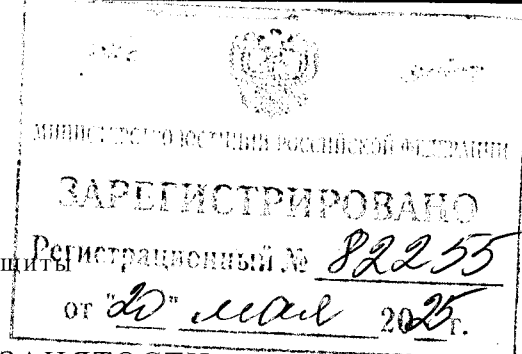 МИНИСТЕРСТВО ЮСТИЦИИ РОССИЙСКОЙ ФЕДЕРАЦИИ
ЗАРЕГИСТРИРОВАНО
щиты Регистрационный № 82255
от "20" мая 2025г.
ЗАНЯТОСТИ